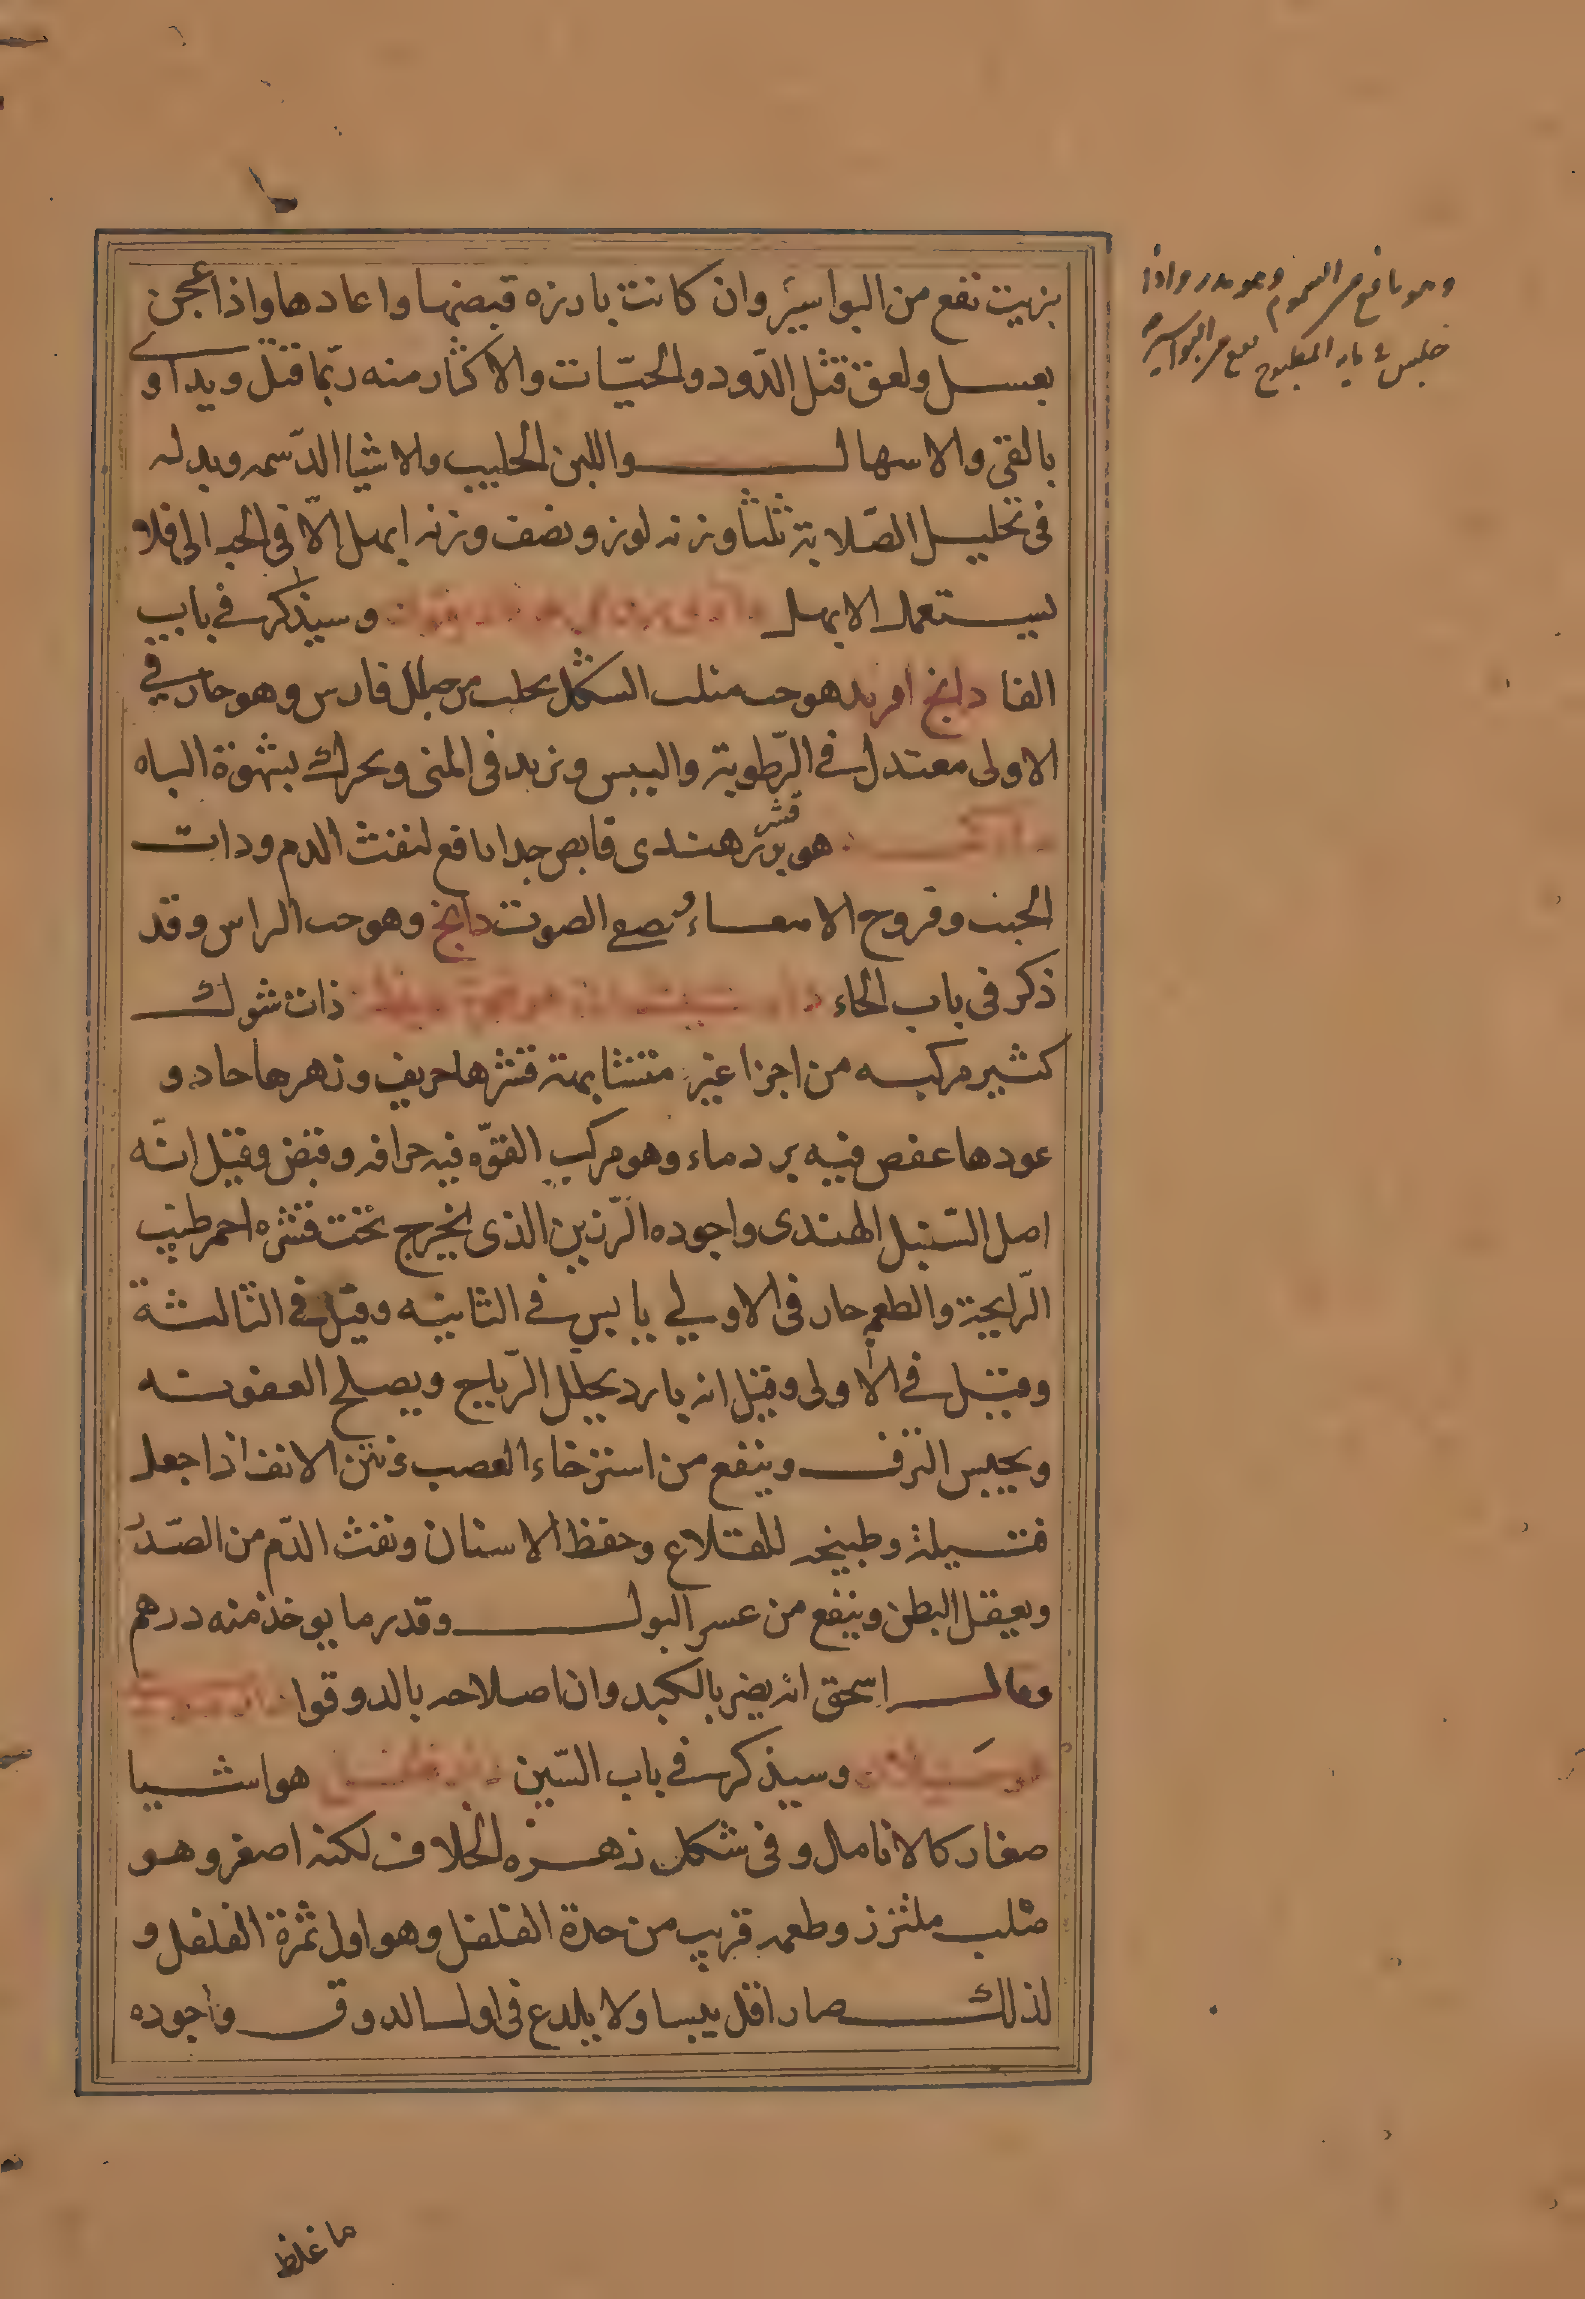 بزيت نفع من البواسير وان كانت بارزه قبضها واعادها واذا عجن
بعسل ولعق قتل الدّود والحيّات والاكثار منه ربّما قتل ويداوى
بالقى والاسهال واللبن الحليب والاشيا الدّسمه وبدله
فى تحليل الصّلابة ثلثا وزنه لوز ونصف وزنه ابهل الّا فى الحبالى فلا
يستعمل الابهل وسيذكر فى باب
الفا دابخ افريد هو حب مثلث الشكل يجلب من جبال فارس وهو حار فى
الاولى معتدل فى الرّطوبة واليبس ويزيد فى المنى ويحرك شهوة الباه
هو قشر هندى قابض جدا نافع لنفث الدم وذات
الجنب وقروح الامعاء ويصفى الصوت دابخ وهو حب الراس وقد
ذكر فى باب الحاء ذات شوك
كثير مركبه من اجزا غير متشابهة قشرها حريف وزهرها حاد و
عودها عفص فيه برد ماء وهو مركب القوّه فيه حرافه وقبض وقيل انّه
اصل السّنبل الهندى واجوده الرّزين الذى يخرج تحت قشره احمر طيّب
الرّايحة والطعم حار فى الاولى يابس فى الثانيه وقيل فى الثالثة
وقيل فى الاولى وقيل انه بارد يحلل الرّياح ويصلح العفونه
ويحبس النزف وينفع من استرخاء العصب ونتن الانف اذا جعل
فتيلة وطبيخه للقلاع وحفظ الاسنان ونفث الدّم من الصّدر
ويعقل البطن وينفع من عسر البول وقدر ما يوخذ منه درهم
وقال اسحق انه يضر بالكبد وان اصلاحه بالدوقوا
وسيذكر فى باب السّين هو اشيا
صغار كالانامل وفى شكل زهره الخلاف لكنه اصغر وهو
صلب ملتزز وطعمه قريب من حدة الفلفل وهو اول ثمرة الفلفل و
لذلك صار اقل يبسا ولا يلدع فى اول الذوق واجوده
وهو نافع من السموم وهو مدر واذا
جلس فى المطبوخ نفع من البواسير
ما غلظ